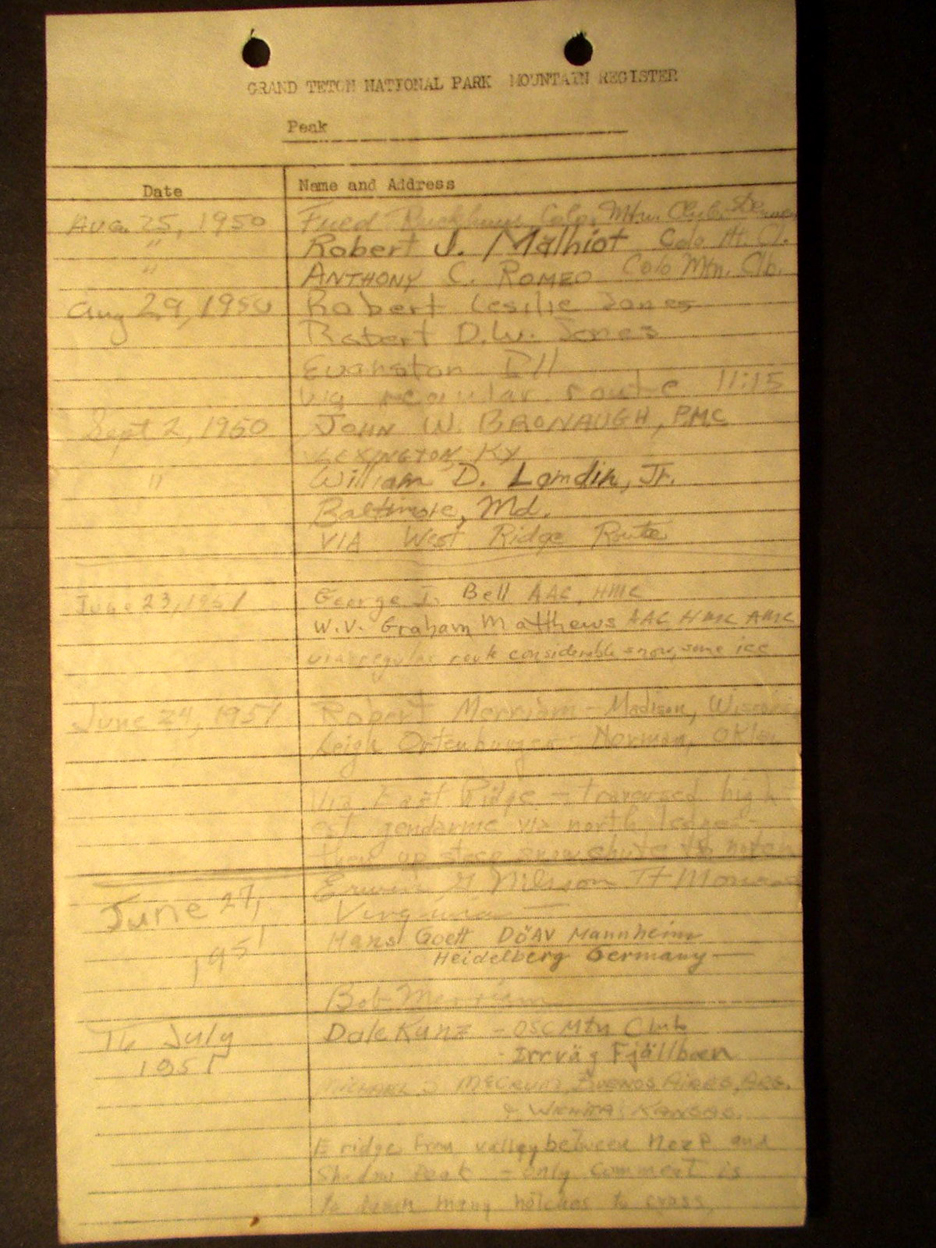 GRAND TETON NATIONAL PARK MOUNTAIN REGISTER
Peak
Date Name and Address
Aug. 25, 1950 Colo. Mtn. Club
" Robert J. Malhiot, Colo. Mt. Cl.
" ANTHONY C. ROMEO Colo Mtn. Clb.
Aug 29, 1950 Robert Leslie Jones
Robert D.W. Jones
Evanston Ill
Via regular route 11:15
Sept 2, 1950 JOHN W. BRONAUGH, PMC
LEXINGTON KY
" William D. Lamdin, Jr.
Baltimore, Md.
VIA West Ridge Route
June 23, 1951 George I. Bell AAC, HMC
W.V. Graham Matthews AAC HMC AMC
via regular route considerable snow, some ice
June 24, 1951 Robert Merriam - Madison, Wisconsin
Leigh Ortenburger - Norman, Okla.
Via East Ridge - traversed high-
est gendarme via north ledge -
then up steep snow chute to notch
June 27, G. Nilsson
Virginia
1951 Hans Goett DÖAV Mannheim
Heidelberg Germany
Bob Merriam
16 July Dale Kunz - OSC Mtn Club
1951 Fjällbaen
MICHAEL J. McCRUM, BUENOS AIRES, ARG.
& WICHITA KANSAS.
E ridge from valley between Nez P and
Shadow Peak - only comment is
to many notches to cross,